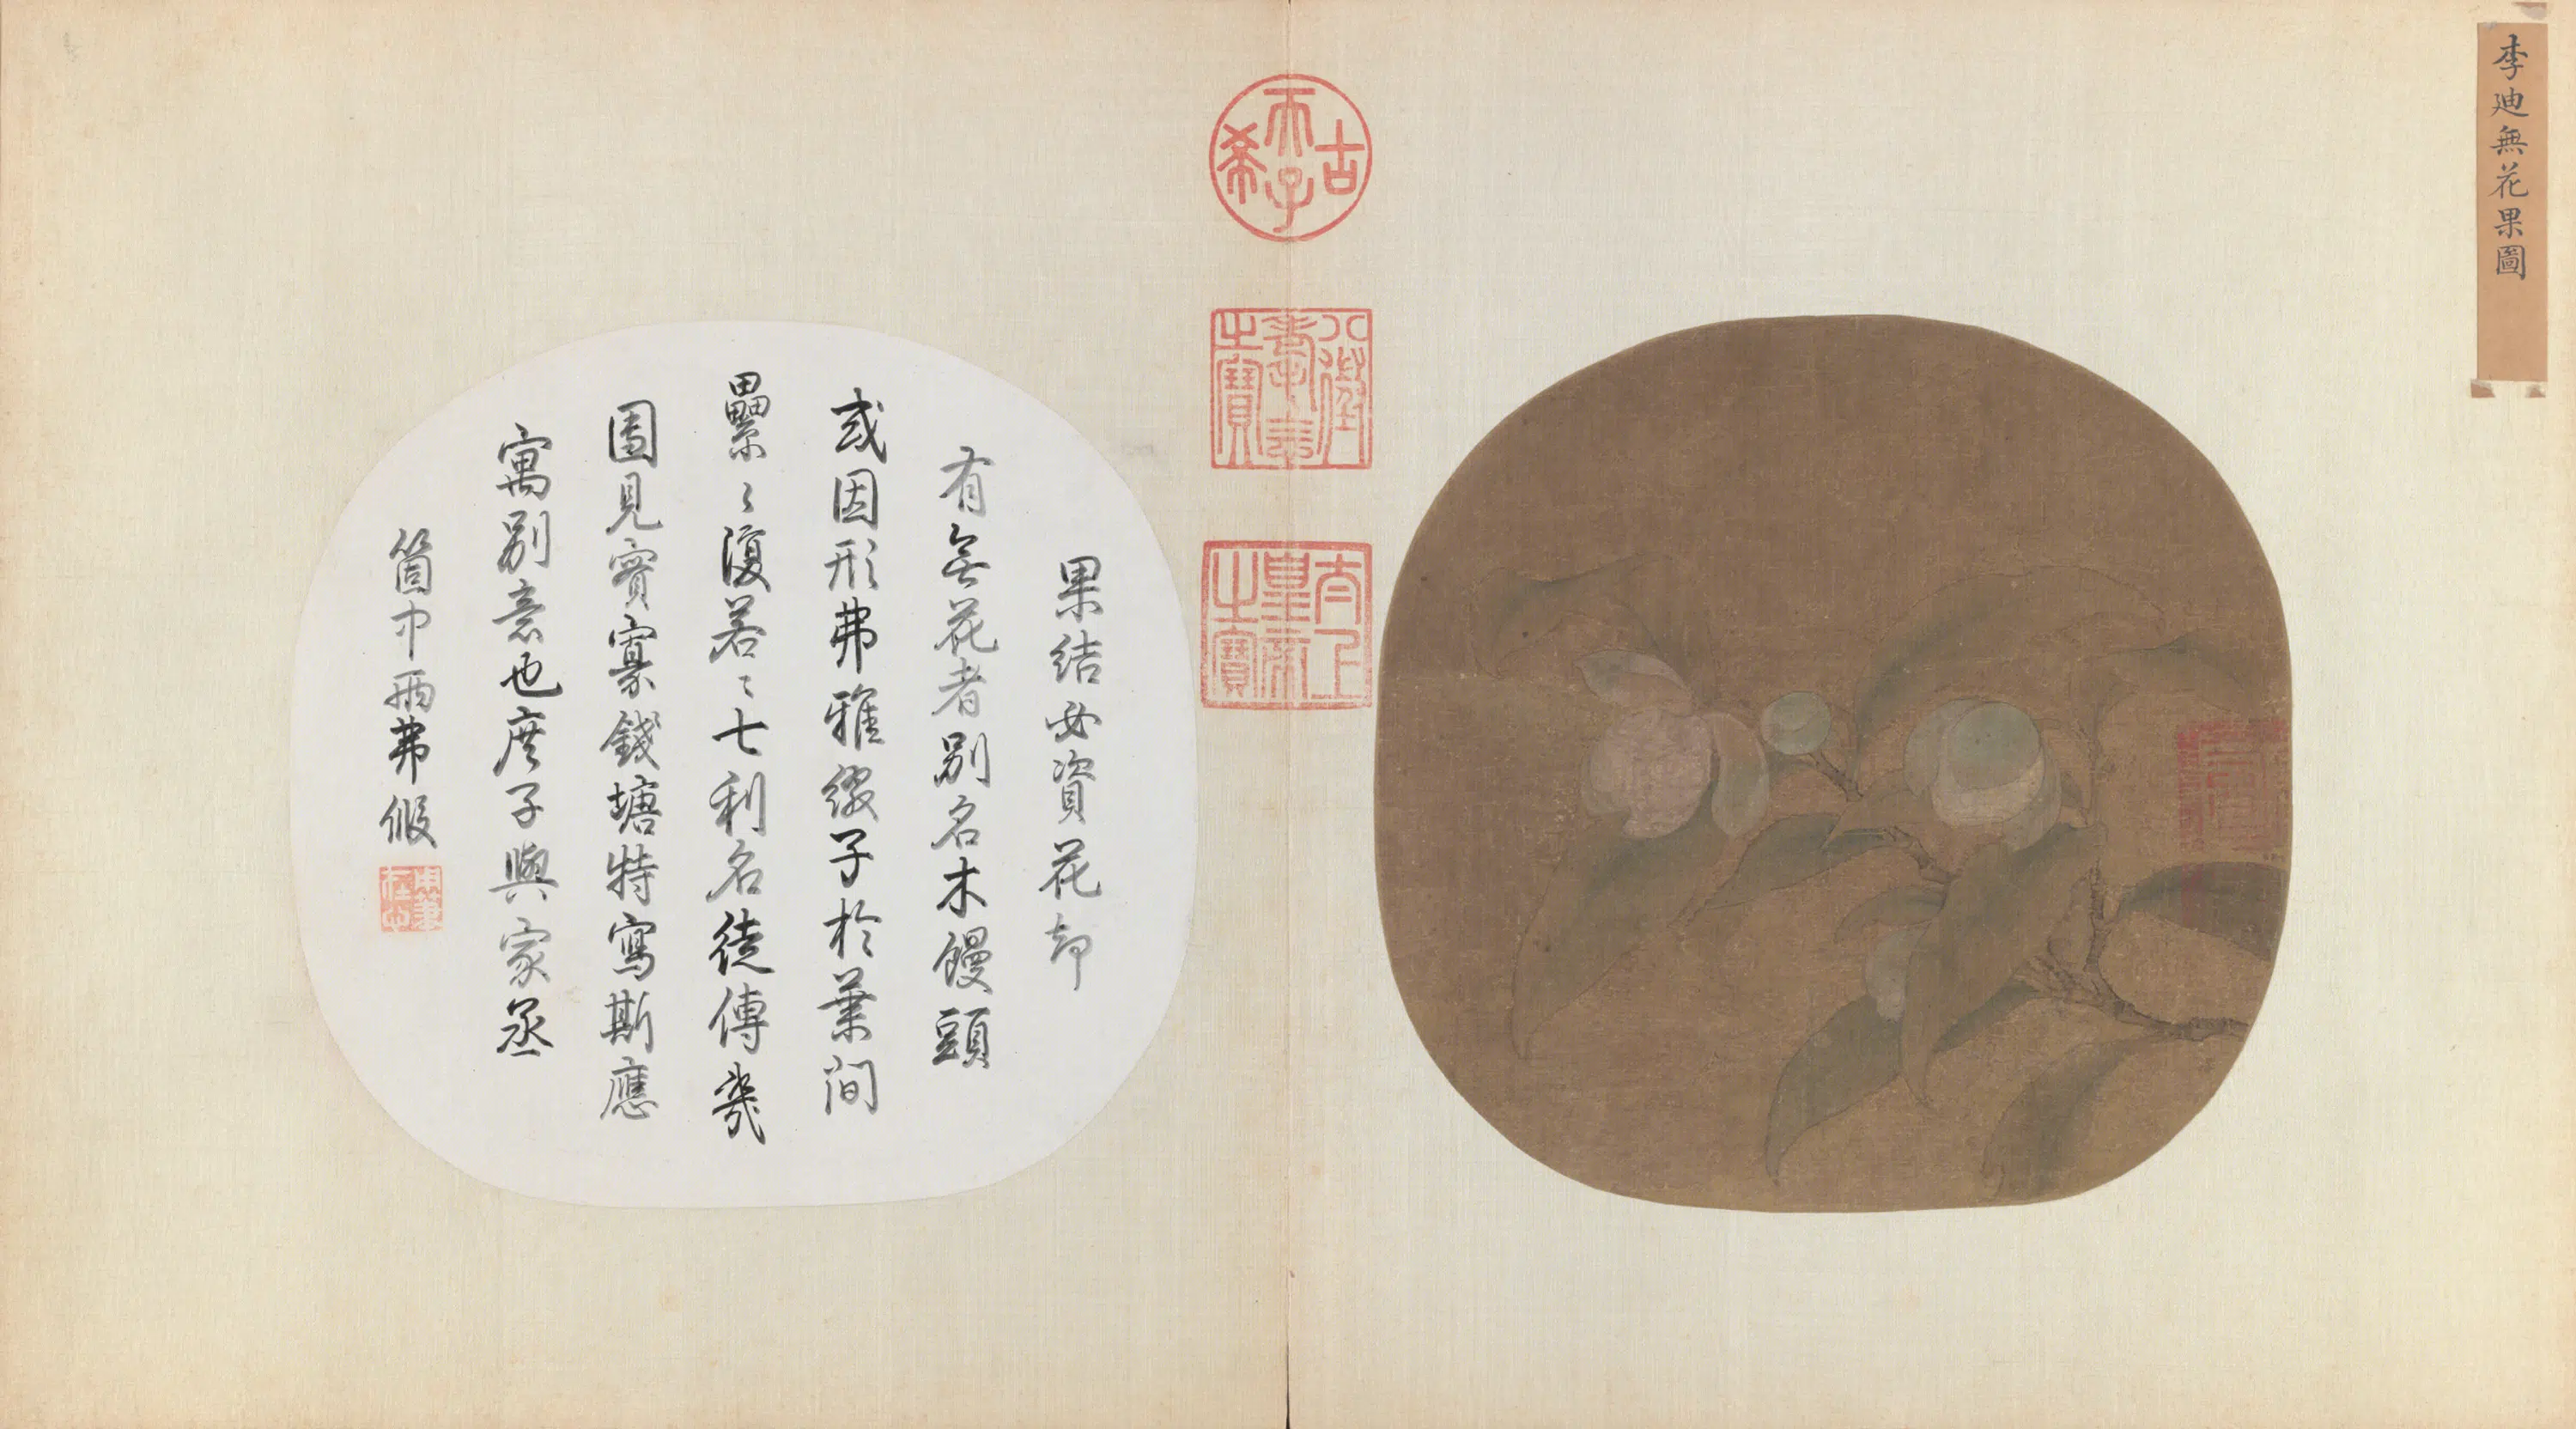 李迪無花果圖
古稀天子
八徵耄念之寶
太上皇帝之寶
果結必資花却
有無花者別名木饅頭
或因形弗雅綴子於葉間
纍〻復若〻七利名徒傳幾
園見實寡錢塘特寫斯應
寓別意也度子與家丞
箇中兩弗假